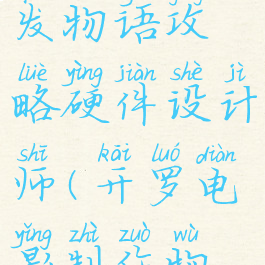 发物语攻
lüè yìng jiàn shè jì
略硬件设计
shī kāi luó diàn
师(开罗电
yǐng zhì zuò wù
影制作物